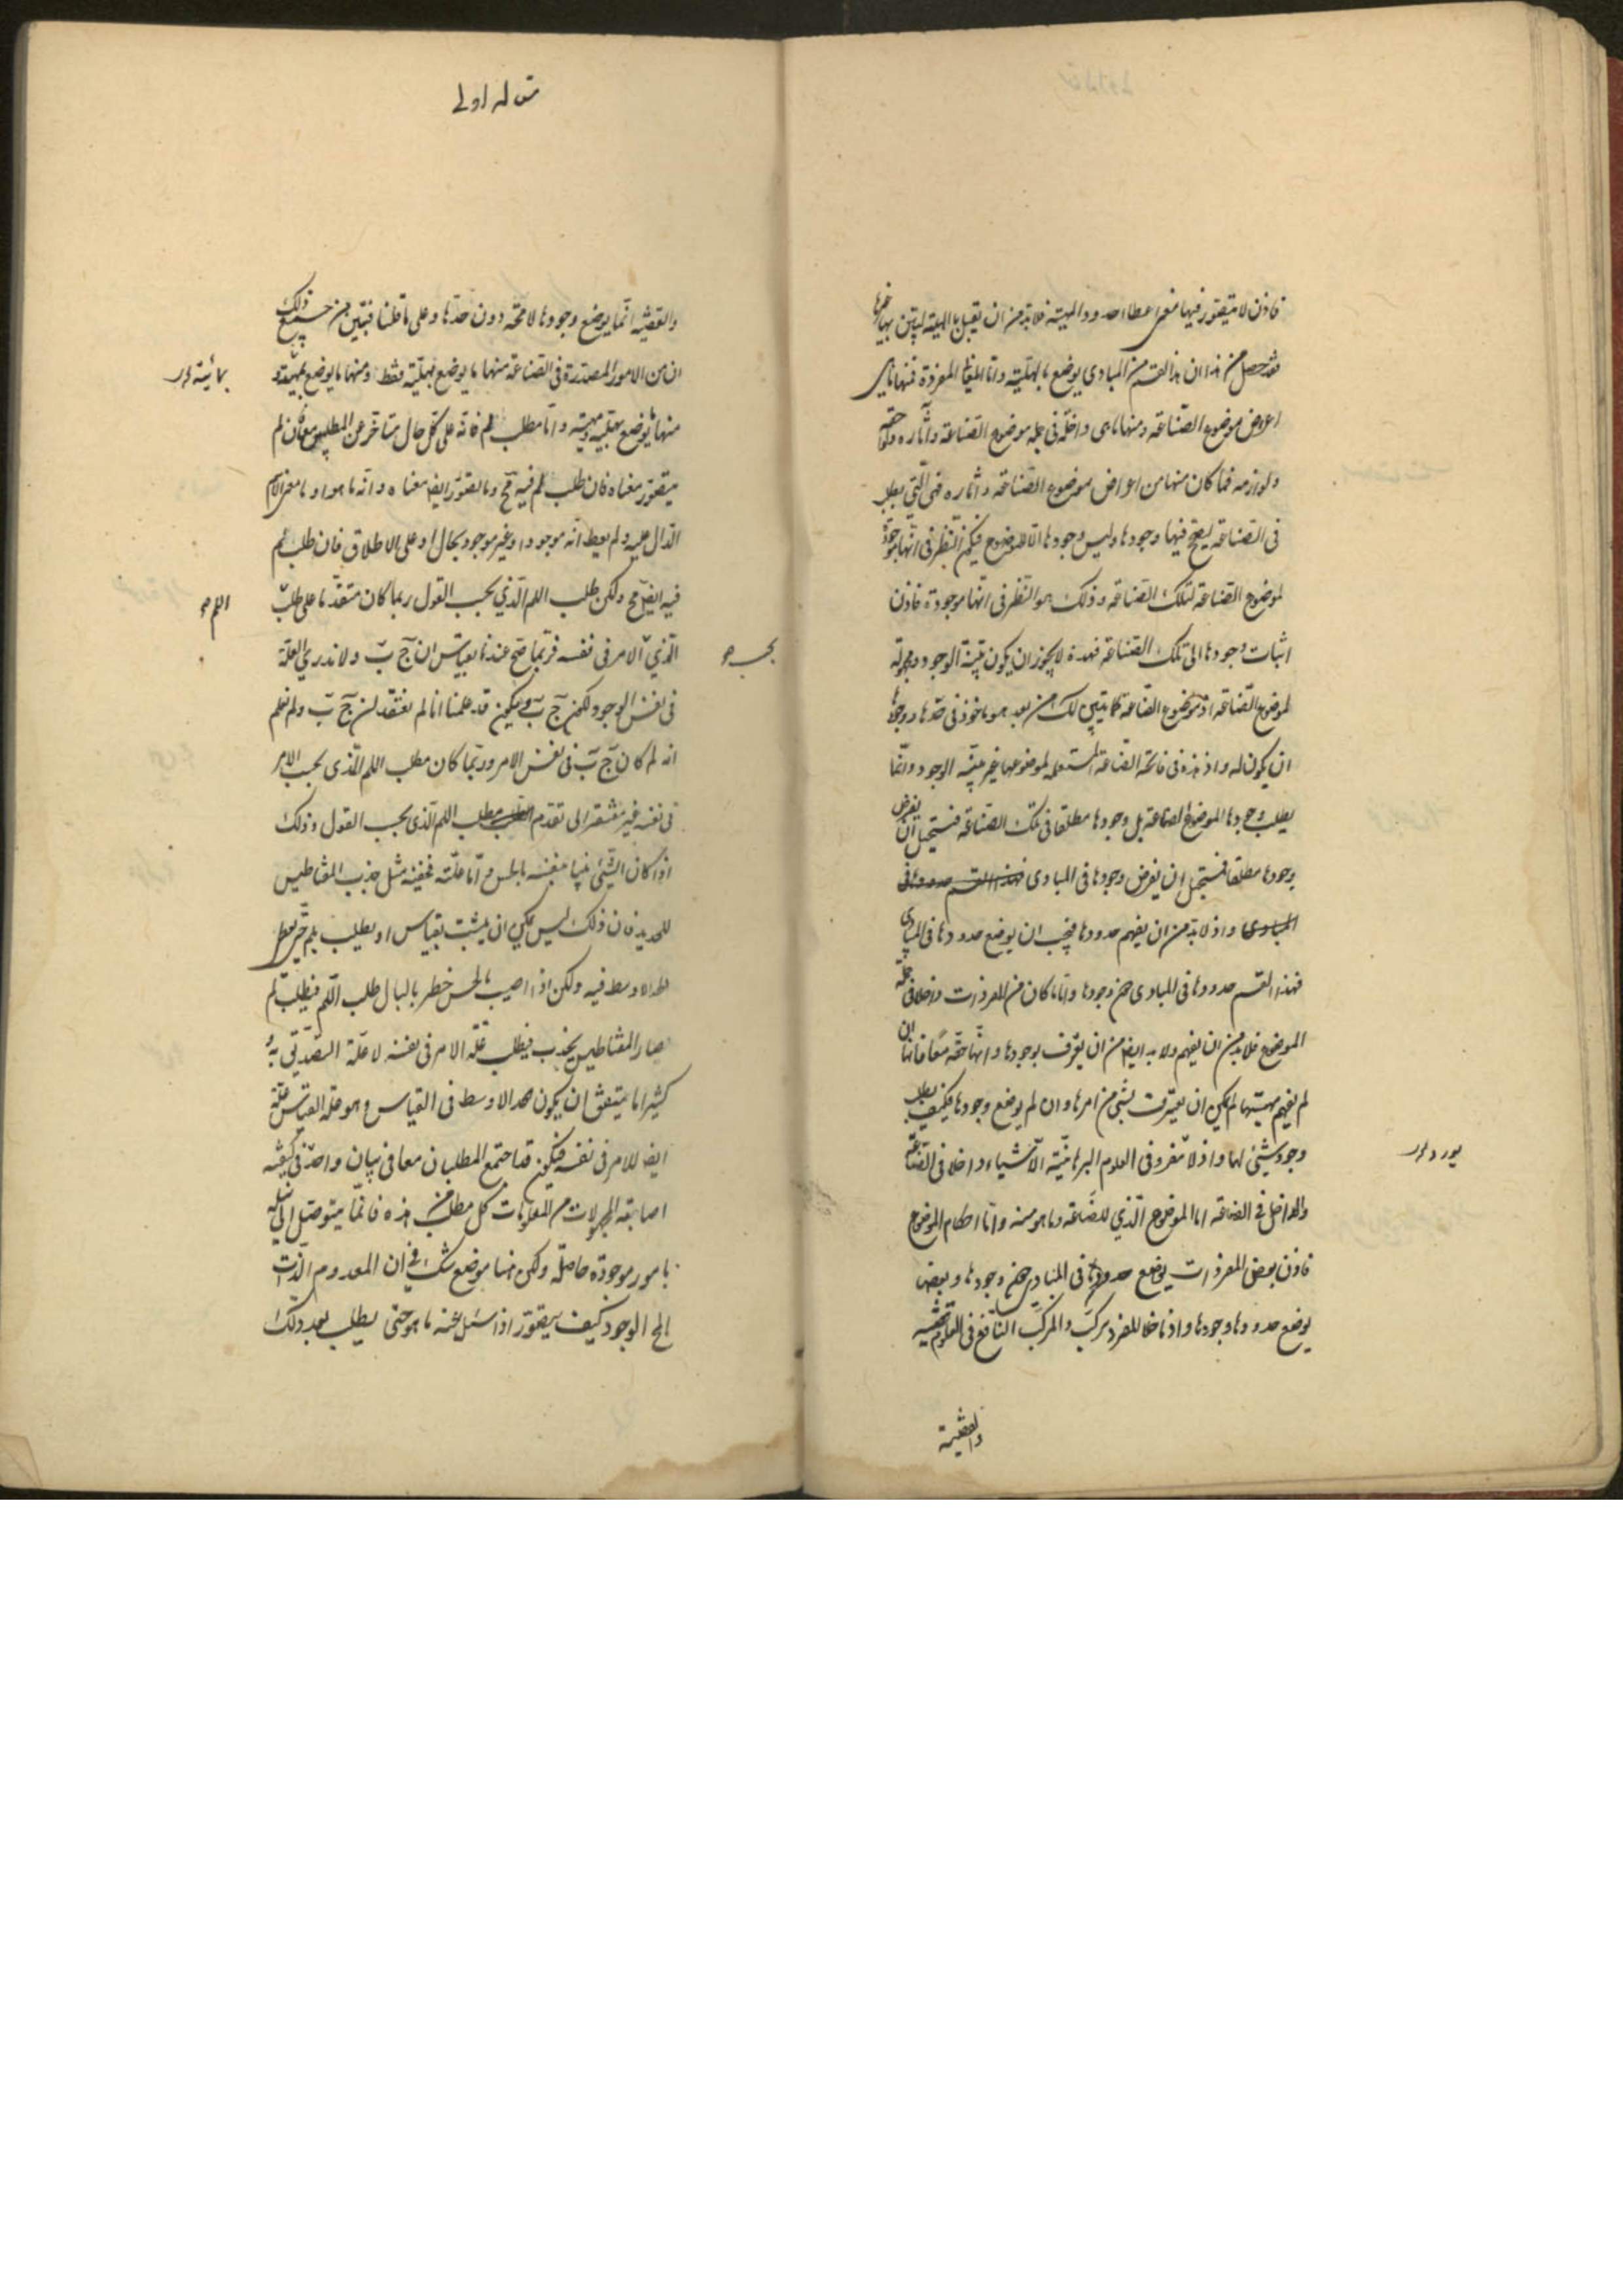 فاذن لا يتصور فيها معنى اعطا الحدود والمهية فلا بد من ان تقبل بالهلية ليتبين بها غيرها
فقد حصل من هذا ان هذا القسم من المبادى يوضع بالهلية واما المعانى المفردة فمنها ما هى
اعراض موضوع الصناعة ومنها ما هى داخلة فى جملة موضوع الصناعة وآثاره ولواحقه
ولوازمه فما كان منها من اعراض موضوع الصناعة وآثاره فهى التى يطلب
فى الصناعة ليصح فيها وجودها وليس وجودها الا للموضوع فيكون النظر فى انها موجودة
لموضوع الصناعة لتلك الصناعة وذلك هو النظر فى انها موجودة فاذن
اثبات وجودها الى تلك الصناعة فهذه لا يجوز ان يكون بينة الوجود ومجهولة
لموضوع الصناعة اذ موضوع الصناعة كما يتبين لك من بعد هو ماخوذ فى حدها ووجودها
ان يكون له واذ هذه فى فاتحة الصناعة المستعملة لموضوعها غير بينة الوجود وانما
يطلب وجودها لموضوع الصناعة بل وجودها مطلقا فى تلك الصناعة فيستحيل ان يفرض
وجودها مطلقا فيستحيل ان يفرض وجودها فى المبادى فهذا القسم حدودها فى
المبادى واذ لا بد من ان يفهم حدودها فيجب ان يوضع حدودها فى المبادى
فهذا القسم حدودها فى المبادى دون وجودها واما ما كان من المفردات داخلا فى جملة
الموضوع فلا بد من ان يفهم ولا بد ايضا من ان يعترف بوجودها وانها حقة معا فانها ان
لم يفهم مهيتها لم يمكن ان يعترف بشئ من امرها وان لم يوضع وجودها فكيف يطلب
وجود شئ لها واذ لا مفرد فى العلوم البرهانية الا شياء داخلا فى الصناعة
والداخل فى الصناعة اما الموضوع الذي للصناعة وما هو منه واما احكام الموضوع
فاذن بعض المفردات يوضع حدودها فى المبادى دون وجودها وبعضها
يوضع حدودها ووجودها واذ ما خلا المفرد مركب والمركب النافع فى العلوم
والقضية
يورد
مقاله اولى
والقضية انما يوضع وجودها لا محة دون حدها وعلى ما قلنا فبين من جميع ذلك
ان من الامور المصدرة فى الصناعة منها ما يوضع بهلية فقط ومنها ما يوضع بمهية و
منها ما يوضع بهلية ومهية واما مطلب لم فانه على كل حال متاخر عن المطلبين معا فان لم
يتصور معناه فان طلب لم فيه مح وما يتصور ايضا معناه وانه ما هو او ما معنى الاسم
الدال عليه ولم يعط انه موجود او غير موجود بحال او على الاطلاق فان طلب لم
فيه ايض مح ولكن طلب اللم الذي بحسب القول ربما كان متقدما على طلب
الذي الامر فى نفسه فربما صح عندنا بقياس ان ج ب ولا ندرى العلة
فى نفس الوجود لكون ج ب فيكون قد علمنا انا لم نعتقد لن ج ب ولم نعلم
انه لم كان ج ب فى نفس الامر وربما كان مطلب اللم الذى بحسب الامر
فى نفسه غير مفتقر الى تقدم مطلب اللم الذى بحسب القول وذلك
اذا كان الشئ بينا بنفسه بالحس واما علته فخفية مثل جذب المغناطيس
للحديد فان ذلك ليس يمكن ان يثبت بقياس او يطلب بلم حتى يعط
الحد الاوسط فيه ولكن اذا اصيب بالحس خطر بالبال طلب اللم فيطلب لم
صار المغناطيس يجذب فيطلب علة الامر فى نفسه لا علة التصديق به و
كثيرا ما يتفق ان يكون الحد الاوسط فى القياس وهو علة القياس علة
ايضا للامر فى نفسه فيكون قد اجتمع المطلبان معا فى بيان واحد فى كيفية
اصابة المجهولات من المعلومات كل مطلب من هذه فانما يتوصل الى نيله
بامور موجودة حاصلة ولكن هنا موضع شك فى ان المعدوم الذات
المح الوجود كيف يتصور اذا سئل عنه ما هو حتى يطلب بعد ذلك
اللم
بحسب